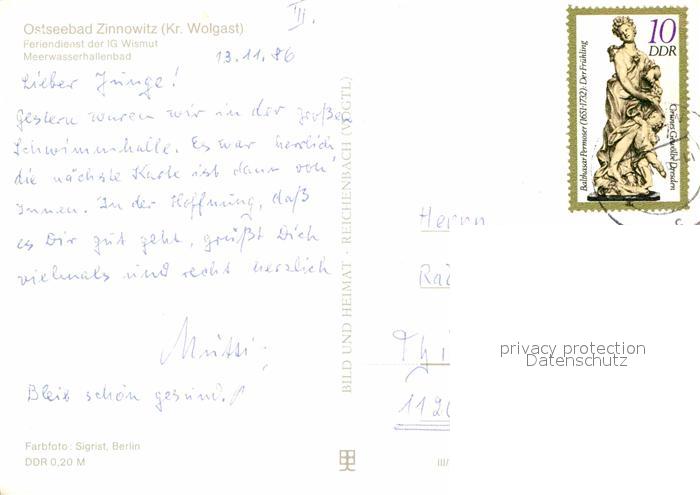 III.
Ostseebad Zinnowitz (Kr. Wolgast)
Feriendienst der IG Wismut
Meerwasserhallenbad
13.11.86
Lieber Junge!
Gestern waren wir in der großen
Schwimmhalle. Es war herrlich,
die nächste Karte ist dann von
Innen. In der Hoffnung, daß
es Dir gut geht, grüßt Dich
vielmals und recht herzlich
Mutti.
Bleib schön gesund!
Farbfoto: Sigrist, Berlin
DDR 0,20 M
BILD UND HEIMAT · REICHENBACH (VOGTL)
III/
10
DDR
Balthasar Permoser (1651-1732): Der Frühling
Grünes Gewölbe Dresden
Herrn
privacy protection
Datenschutz